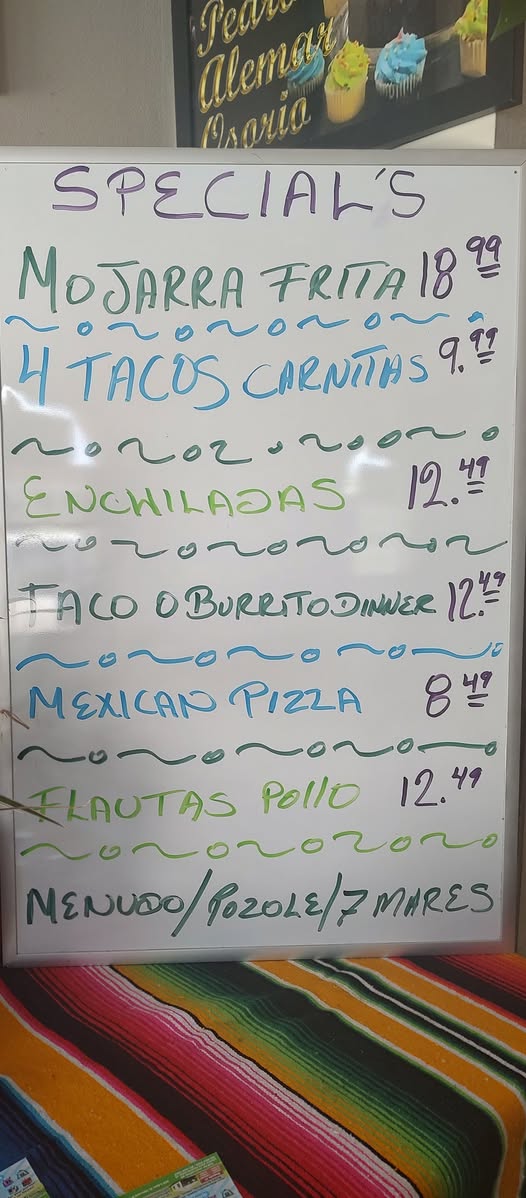 Pedro
Alemar
Osorio
SPECIAL'S
MOJARRA FRITA 18 99
4 TACOS CARNITAS 9.99
ENCHILADAS 12.49
TACO O BURRITO DINNER 12.49
MEXICAN PIZZA 8 49
FLAUTAS POllO 12.49
MENUDO/POZOLE/7 MARES